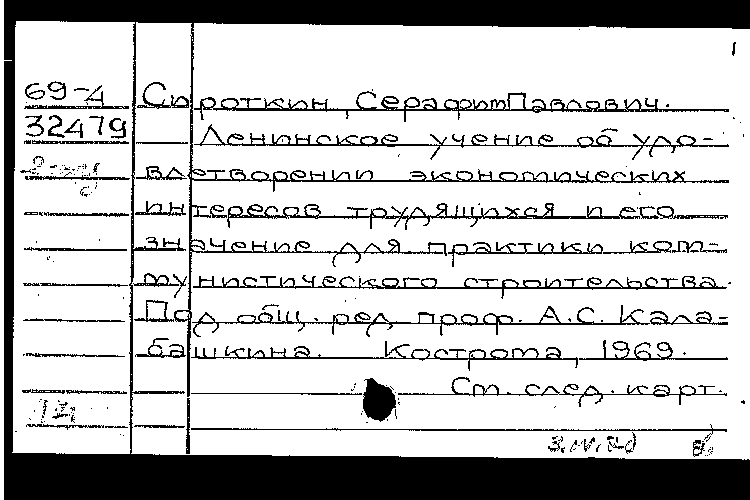 1
69-4 Сироткин, Серафим Павлович.
32479 Ленинское учение об удо-
влетворении экономических
интересов трудящихся и его
значение для практики ком-
мунистического строительства.
Под общ. ред. проф. А.С. Кала-
башкина. Кострома, 1969.
См. след. карт.